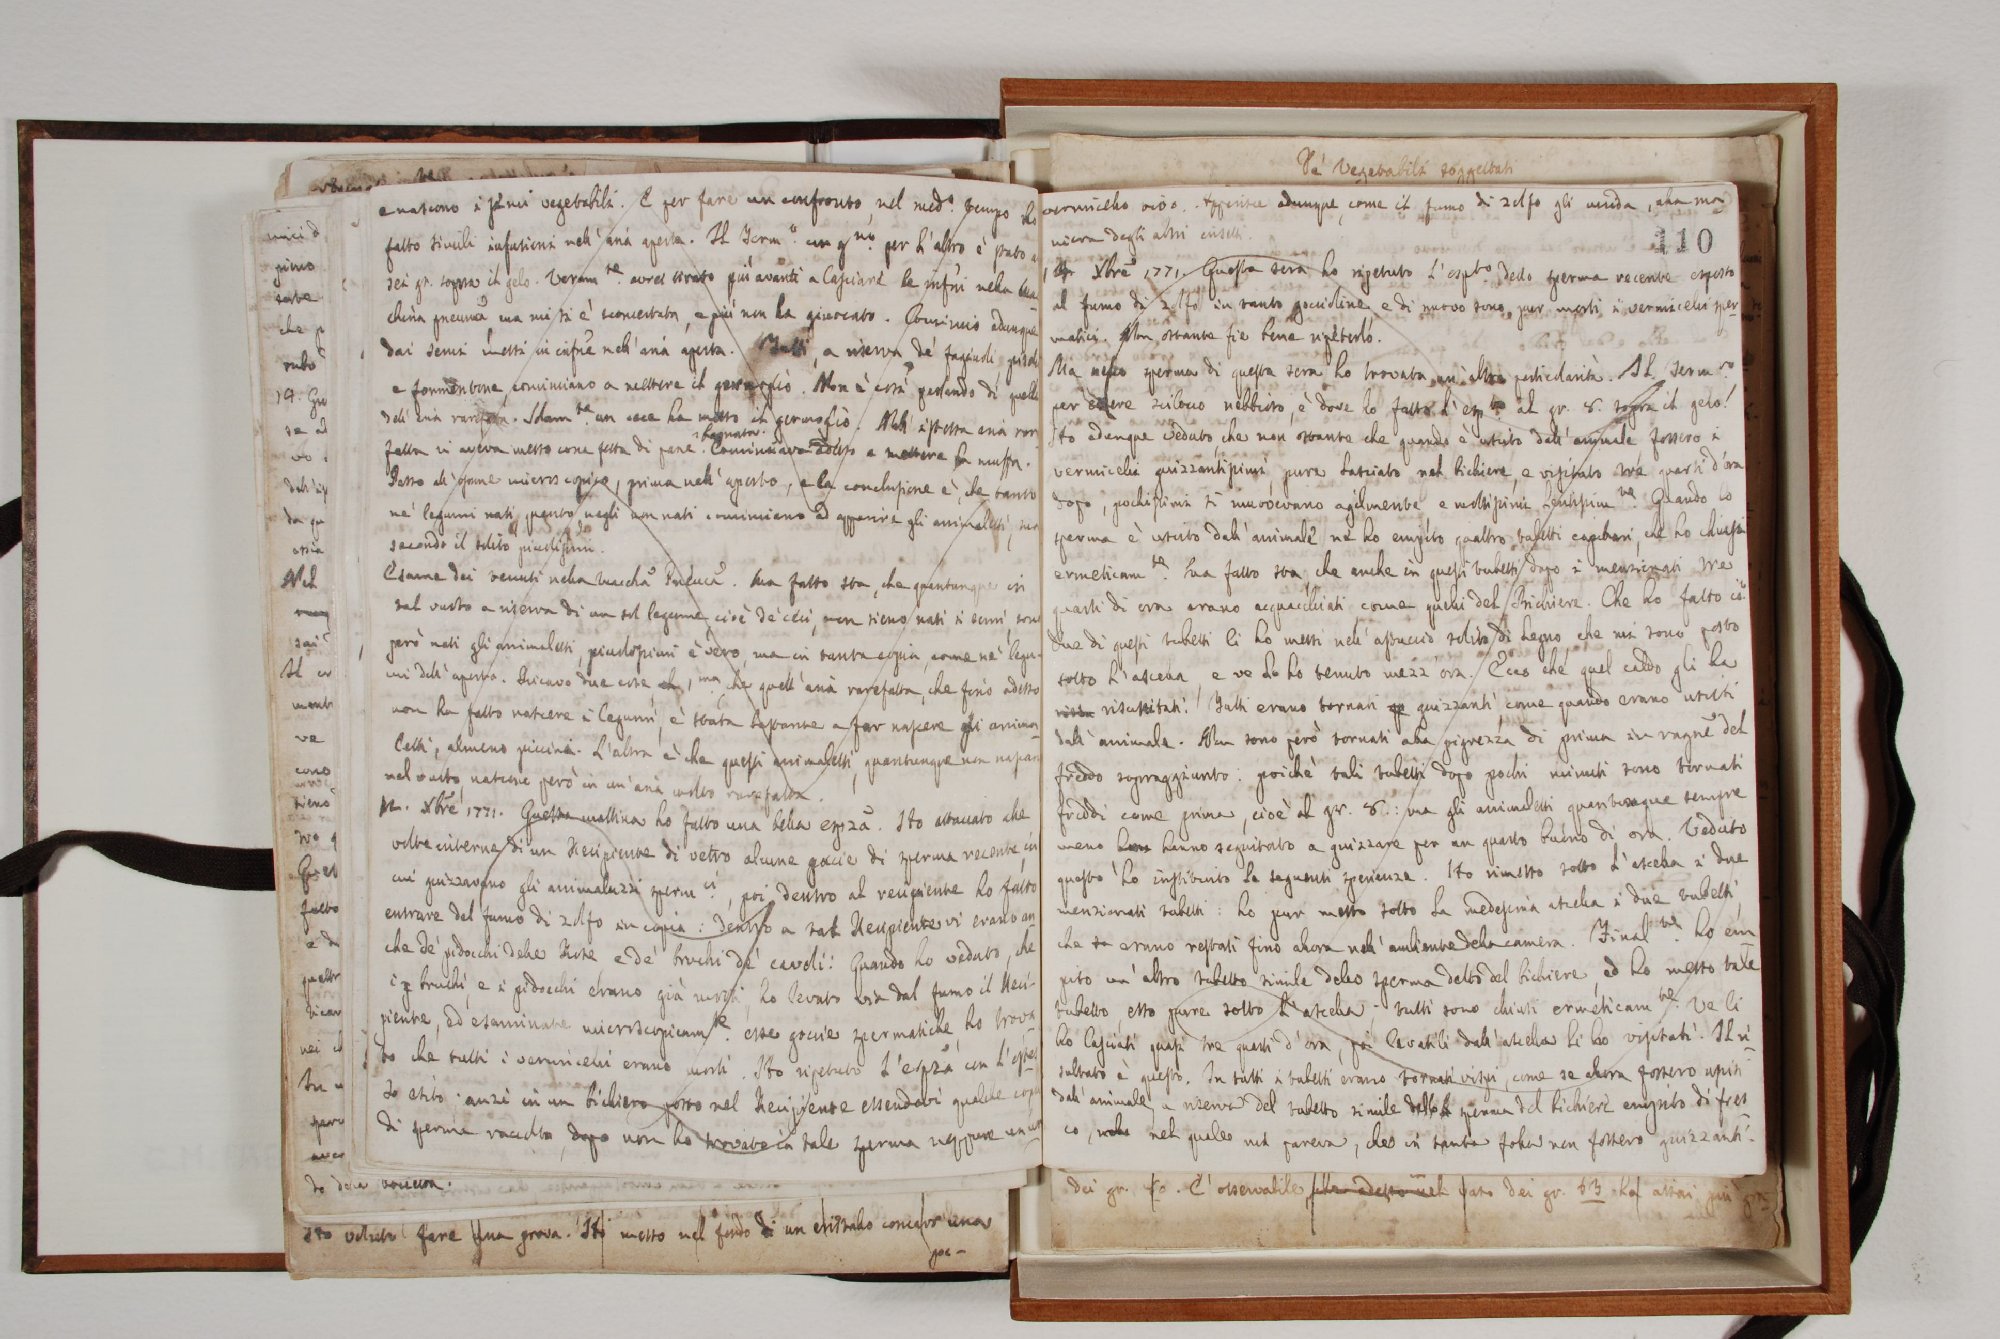 e nascono i semi vegetabili. E per fare un confronto, nel med.o tempo ho
fatto simili infusioni nell'aria aperta. Il Term.o per l'altro è stato a
sei gr. sopra il gelo. avrei tirato più avanti a lasciare le infni nella Mac
china pneuma ma mi si è sconcertata, e più non ha giuocato. Comincio adunque
dai semi messi in infne nell'aria aperta. Tutti, a riserva de' fagiuoli, piselli
e formentone, cominciano a mettere il germoglio. Non è così parlando di quelli
dell'aria rarefatta. Solam.te un cece ha messo il germoglio. Nell'istessa aria rare
fatta vi aveva messo una fetta di pane bagnata. Cominciava adesso a mettere la muffa.
Passo all'esame microscopico, prima nell'aperto, e la conclusione è, che tanto
ne' legumi nati, quanto negli non nati cominciano ad apparire gli animaletti, ma
secondo il solito piccolissimi.
Esame dei venuti nella Macchâ Pneucâ. Ma fatto sta, che quantunque in
tal vuoto a riserva di un sol legume cioè de' ceci, non sieno nati i semi, sono
però nati gli animaletti, piccolissimi è vero, ma in tanta copia, come ne' legu-
mi dell'aperto. Ricavo due cose, 1.ma che quell'aria rarefatta, che fino adesso
non ha fatto nascere i legumi, è stata bastante a far nascere gli anima
letti, almeno piccini. L'altra è che questi animaletti, quantunque non nascan
nel vuoto, nascono però in un'aria molto rarefatta.
Xbre 1771. Questa mattina ho fatto una bella espza. Ho attaccato alle
volte interne di un Recipiente di vetro alcune goccie di sperma recente, in
cui guizzavano gli animaluzzi sperm.ci, poi dentro al recipiente ho fatto
entrare del fumo di zolfo in copia: dentro a tal Recipiente vi erano an
che de' pidocchi delle Rose e de' bruchi de' cavoli. Quando ho veduto, che
i bruchi, e i pidocchi erano già morti, ho levato via dal fumo il Reci-
piente, ed esaminate microscopicam.te esse goccie spermatiche, ho trova
to che tutti i vermicelli erano morti. Ho ripetuto l'espza con l'istes
so esito: anzi in un bichiero posto nel Recipiente essendovi qualche copia
di sperma raccolta, dopo non ho trovato in tale sperma neppure un
vermicello vivo. Apparisce adunque, come il fumo di zolfo gli uccida, alla ma
niera degli altri insetti.
110
Xbre 1771. Questa sera ho ripetuto l'espto dello sperma recente esposto
al fumo di zolfo in tante goccioline, e di nuovo sono pur morti i vermicelli sper-
matici. Non ostante fie bene ripeterlo.
Ma nello sperma di questa sera ho trovata un'altra particolarità. Il Term.ro
per essere scilocco nebbioso, è dove ho fatto l'esp.to al gr. 8. sopra il gelo.
Ho adunque veduto, che non ostante che quando è uscito dall'animale fossero i
vermicelli guizzantissimi, pure lasciato nel bichiere, e visitato tre quarti d'ora
dopo, pochissimi si muovevano agilmente e moltissimi lentissim.te. Quando lo
sperma è uscito dall'animale ne ho empito quattro tubetti capillari, che ho chiusi
ermeticam.te. Ma fatto sta, che anche in questi tubetti dopo i menzionati tre
quarti di ora erano acquacchiati come quelli del Bichiere. Che ho fatto io?
due di questi tubetti li ho messi nell'astuccio solito di legno, che mi sono posto
sotto l'ascella, e ve lo ho tenuto mezz'ora. Ecco che quel caldo gli ha
risuscitati. Tutti erano tornati guizzanti, come quando erano usciti
dall'animale. Non sono però tornati alla pigrezza di prima in ragne del
freddo sopraggiunto: poichè tali tubetti dopo pochi minuti sono tornati
freddi come prima, cioè al gr. 8.: ma gli animaletti quantunque sempre
meno hanno seguitato a guizzare per un quarto buono di ora. Veduto
questo ho instituito la seguente sperienza. Ho rimesso sotto l'ascella i due
menzionati tubetti: ho pur messo sotto la medesima ascella i due tubetti,
che erano restati fino allora nell'ambiente della camera. Final.te ho em
pito un'altro tubetto simile dello sperma detto del bichiere, ed ho messo tale
tubetto esso pure sotto l'ascella. tutti sono chiusi ermeticam.te. Ve li
ho lasciati quasi tre quarti d'ora, poi levatili dall'ascella li ho visitati. Il ri
sultato è questo. In tutti i tubetti erano tornati vispi, come se allora fossero usciti
dall'animale, a riserva del tubetto simile dello sperma del bichiere empito di fres
co, nel quale mi pareva, che in tanta folla non fossero guizzanti-
De' Vegetabili soggettati
dei gr. E' osservabile nato dei gr. 63 ha assai più gra
to della
Ho voluto fare una prova. Ho messo nel fondo di un cristallo concavo una
goc-